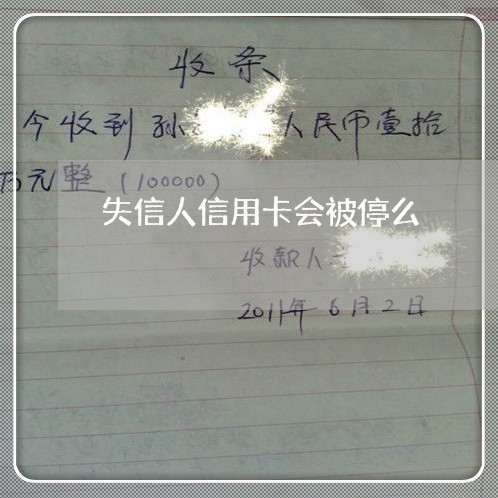 收条
今收到孙 人民币壹拾
万元整（100000）
失信人信用卡会被停么
收款人
2011年6月2日